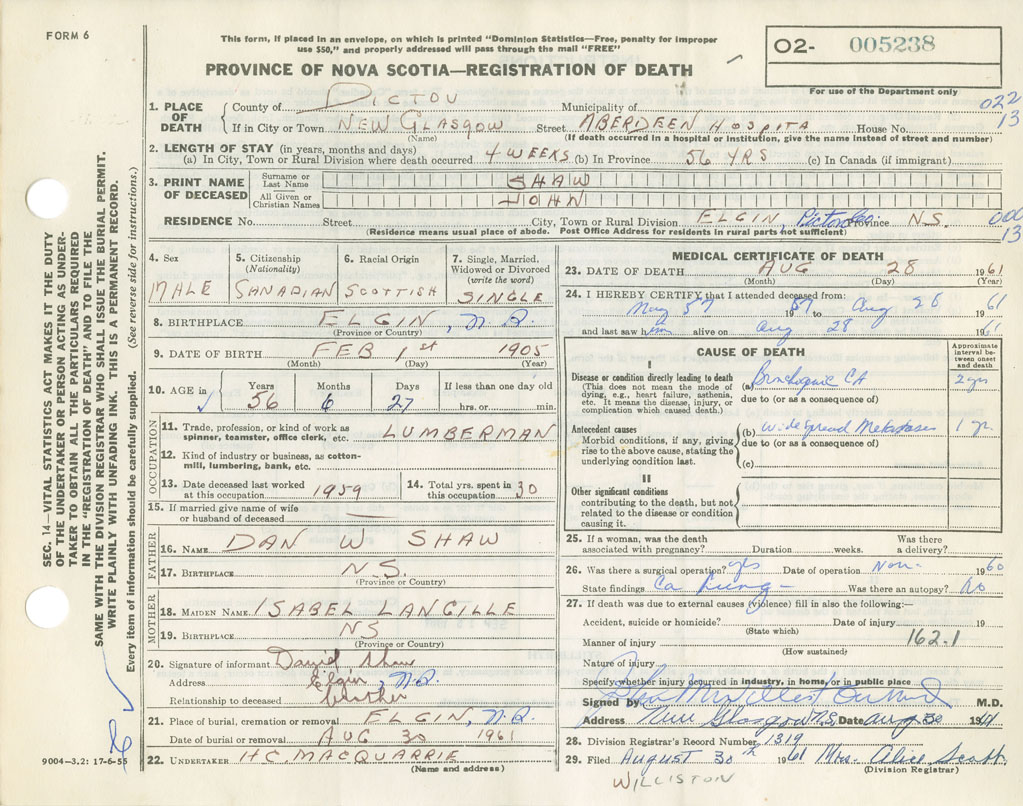 FORM 6
This form, if placed in an envelope, on which is printed "Dominion Statistics—Free, penalty for improper
use $50," and properly addressed will pass through the mail "FREE"
PROVINCE OF NOVA SCOTIA—REGISTRATION OF DEATH
O2- 005238
For use of the Department only
022
13
1. PLACE OF DEATH { County of PICTOU Municipality of
If in City or Town NEW GLASGOW Street ABERDEEN HOSPITA House No.
(If death occurred in a hospital or institution, give the name instead of street and number)
2. LENGTH OF STAY (in years, months and days)
(a) In City, Town or Rural Division where death occurred 4 WEEKS (b) In Province 56 YRS (c) In Canada (if immigrant)
3. PRINT NAME OF DECEASED
Surname or Last Name SHAW
All Given or Christian Names JOHN
RESIDENCE No. Street City, Town or Rural Division ELGIN, Pictou Co. Province N.S.
(Residence means usual place of abode. Post Office Address for residents in rural parts not sufficient)
000
13
4. Sex MALE
5. Citizenship (Nationality) CANADIAN
6. Racial Origin SCOTTISH
7. Single, Married, Widowed or Divorced (write the word) SINGLE
8. BIRTHPLACE ELGIN, N.S.
(Province or Country)
9. DATE OF BIRTH FEB 1st 1905
(Month) (Day) (Year)
10. AGE in Years 56 Months 6 Days 27 If less than one day old hrs. or min.
OCCUPATION
11. Trade, profession, or kind of work as spinner, teamster, office clerk, etc. LUMBERMAN
12. Kind of industry or business, as cotton-mill, lumbering, bank, etc.
13. Date deceased last worked at this occupation 1959
14. Total yrs. spent in this occupation 30
15. If married give name of wife or husband of deceased
FATHER
16. NAME DAN W SHAW
17. BIRTHPLACE N.S.
(Province or Country)
MOTHER
18. MAIDEN NAME ISABEL LANGILLE
19. BIRTHPLACE NS
(Province or Country)
20. Signature of informant David Shaw
Address Elgin, N.S.
Relationship to deceased brother
21. Place of burial, cremation or removal ELGIN, N.S.
Date of burial or removal AUG 30 1961
22. UNDERTAKER H.C. MACQUARRIE
(Name and address)
MEDICAL CERTIFICATE OF DEATH
23. DATE OF DEATH AUG 28 1961
(Month) (Day) (Year)
24. I HEREBY CERTIFY that I attended deceased from:
May 57 1957 to Aug 28 1961
and last saw him alive on Aug 28 1961
CAUSE OF DEATH
Approximate interval between onset and death
I
Disease or condition directly leading to death
(This does not mean the mode of dying, e.g., heart failure, asthenia, etc. It means the disease, injury, or complication which caused death.)
(a) CA 2 yrs
due to (or as a consequence of)
Antecedent causes
Morbid conditions, if any, giving rise to the above cause, stating the underlying condition last.
(b) widespread Metastases 1 yr.
due to (or as a consequence of)
(c)
II
Other significant conditions
contributing to the death, but not related to the disease or condition causing it.
25. If a woman, was the death associated with pregnancy? Duration weeks. Was there a delivery?
26. Was there a surgical operation? yes Date of operation Nov. 1960
State findings Ca Lung - Was there an autopsy? No
27. If death was due to external causes (violence) fill in also the following:—
Accident, suicide or homicide? Date of injury 19
(State which)
Manner of injury 162.1
(How sustained)
Nature of injury
Specify whether injury occurred in industry, in home, or in public place
Signed by M.D.
Address New Glasgow N.S. Date Aug 30 1961
28. Division Registrar's Record Number 1319
29. Filed August 30th 1961 Mrs. Alice Scott
(Division Registrar)
WILLISTON
SEC. 14—VITAL STATISTICS ACT MAKES IT THE DUTY
OF THE UNDERTAKER OR PERSON ACTING AS UNDER-
TAKER TO OBTAIN ALL THE PARTICULARS REQUIRED
IN THE "REGISTRATION OF DEATH" AND TO FILE THE
SAME WITH THE DIVISION REGISTRAR WHO SHALL ISSUE THE BURIAL PERMIT.
WRITE PLAINLY WITH UNFADING INK. THIS IS A PERMANENT RECORD.
Every item of information should be carefully supplied. (See reverse side for instructions.)
9004—3.2: 17-6-55